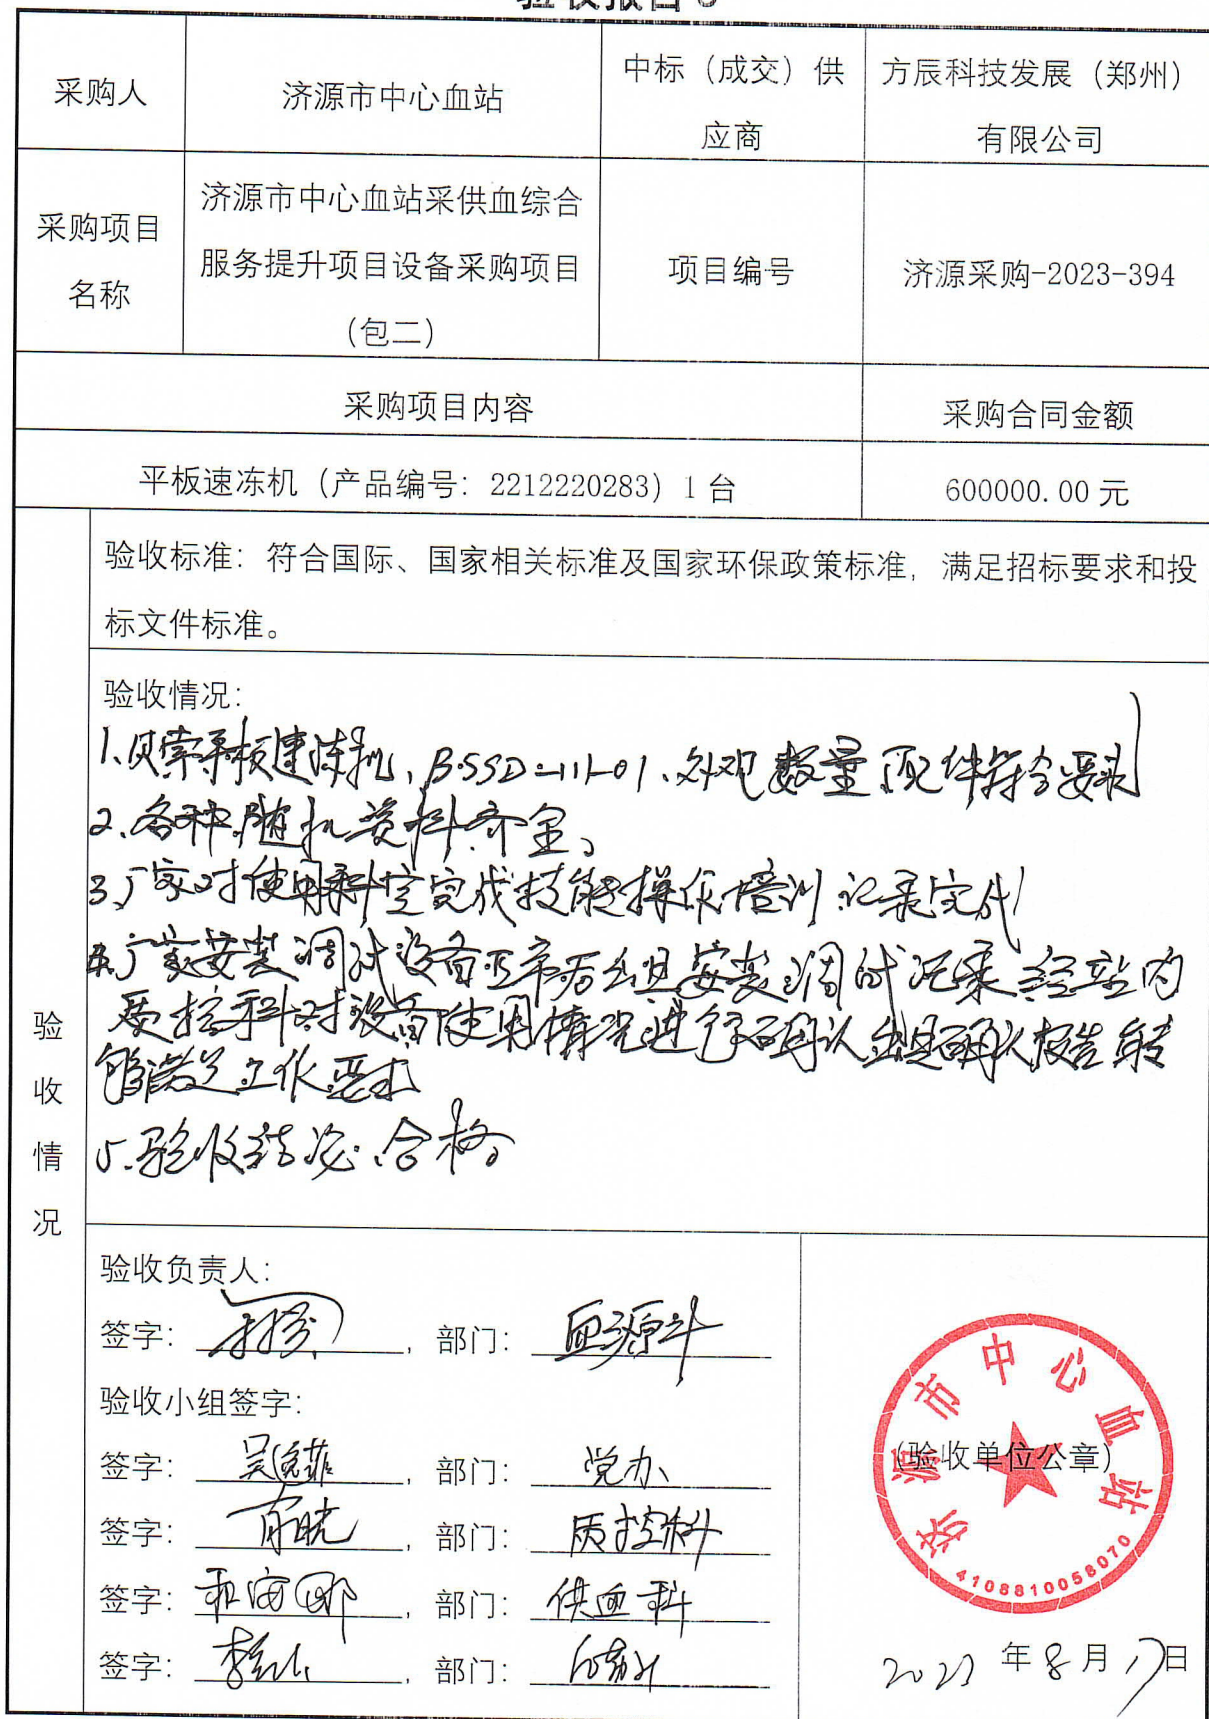 验收报告
采购人
济源市中心血站
中标（成交）供
应商
方辰科技发展（郑州）
有限公司
采购项目
名称
济源市中心血站采供血综合
服务提升项目设备采购项目
（包二）
项目编号
济源采购-2023-394
采购项目内容
采购合同金额
平板速冻机（产品编号：2212220283）1台
600000.00 元
验收情况
验收标准：符合国际、国家相关标准及国家环保政策标准，满足招标要求和投
标文件标准。
验收情况：
1.贝索平板速冻机，外观数量配件符合要求
2.各种随机资料齐全。
3.厂家对使用科室完成技能操作培训 记录完成
4.厂家安装调试设备正常后出具安装调试记录 经站内
质控科对设备使用情况进行了确认 出具确认报告 能
够满足工作要求
5.验收结论：合格
验收负责人：
签字： ，部门：血源科
验收小组签字：
签字： ，部门：党办
签字： ，部门：质控科
签字： ，部门：供血科
签字： ，部门：
济源市中心血站
（验收单位公章）
4108810058070
2023 年 8 月 17日